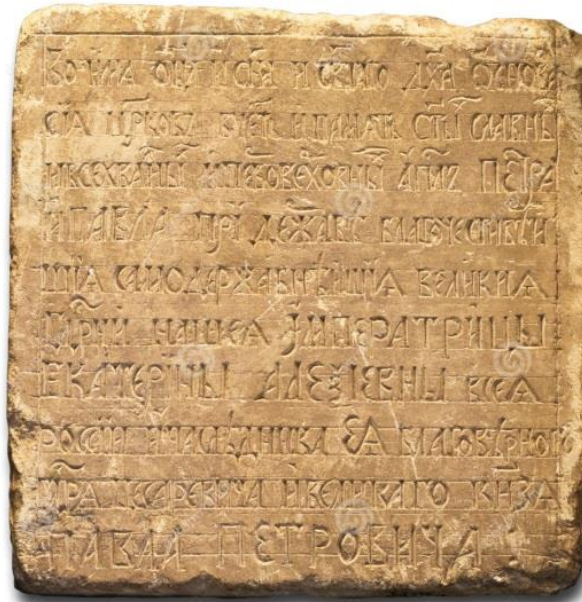 Во имѧ оц҃а и сн҃а и ст҃аго дх҃а ѡснова
сіѧ црковь вҍ паматъ ст҃ы славны
и всехвалны и первовеховны апл҃ъ Петра
и Павла при державѣ благочестивѣи
шїѧ самодержавнѣишїѧ великиѧ
Гдр҃ни нашеѧ Императрицы
Екатерины Алеѯїевны всеѧ
россіи и наслѣдника еѧ благовѣрного
гдр҃ѧ цесаревича и великаго кнѧзѧ
Павла Петровича